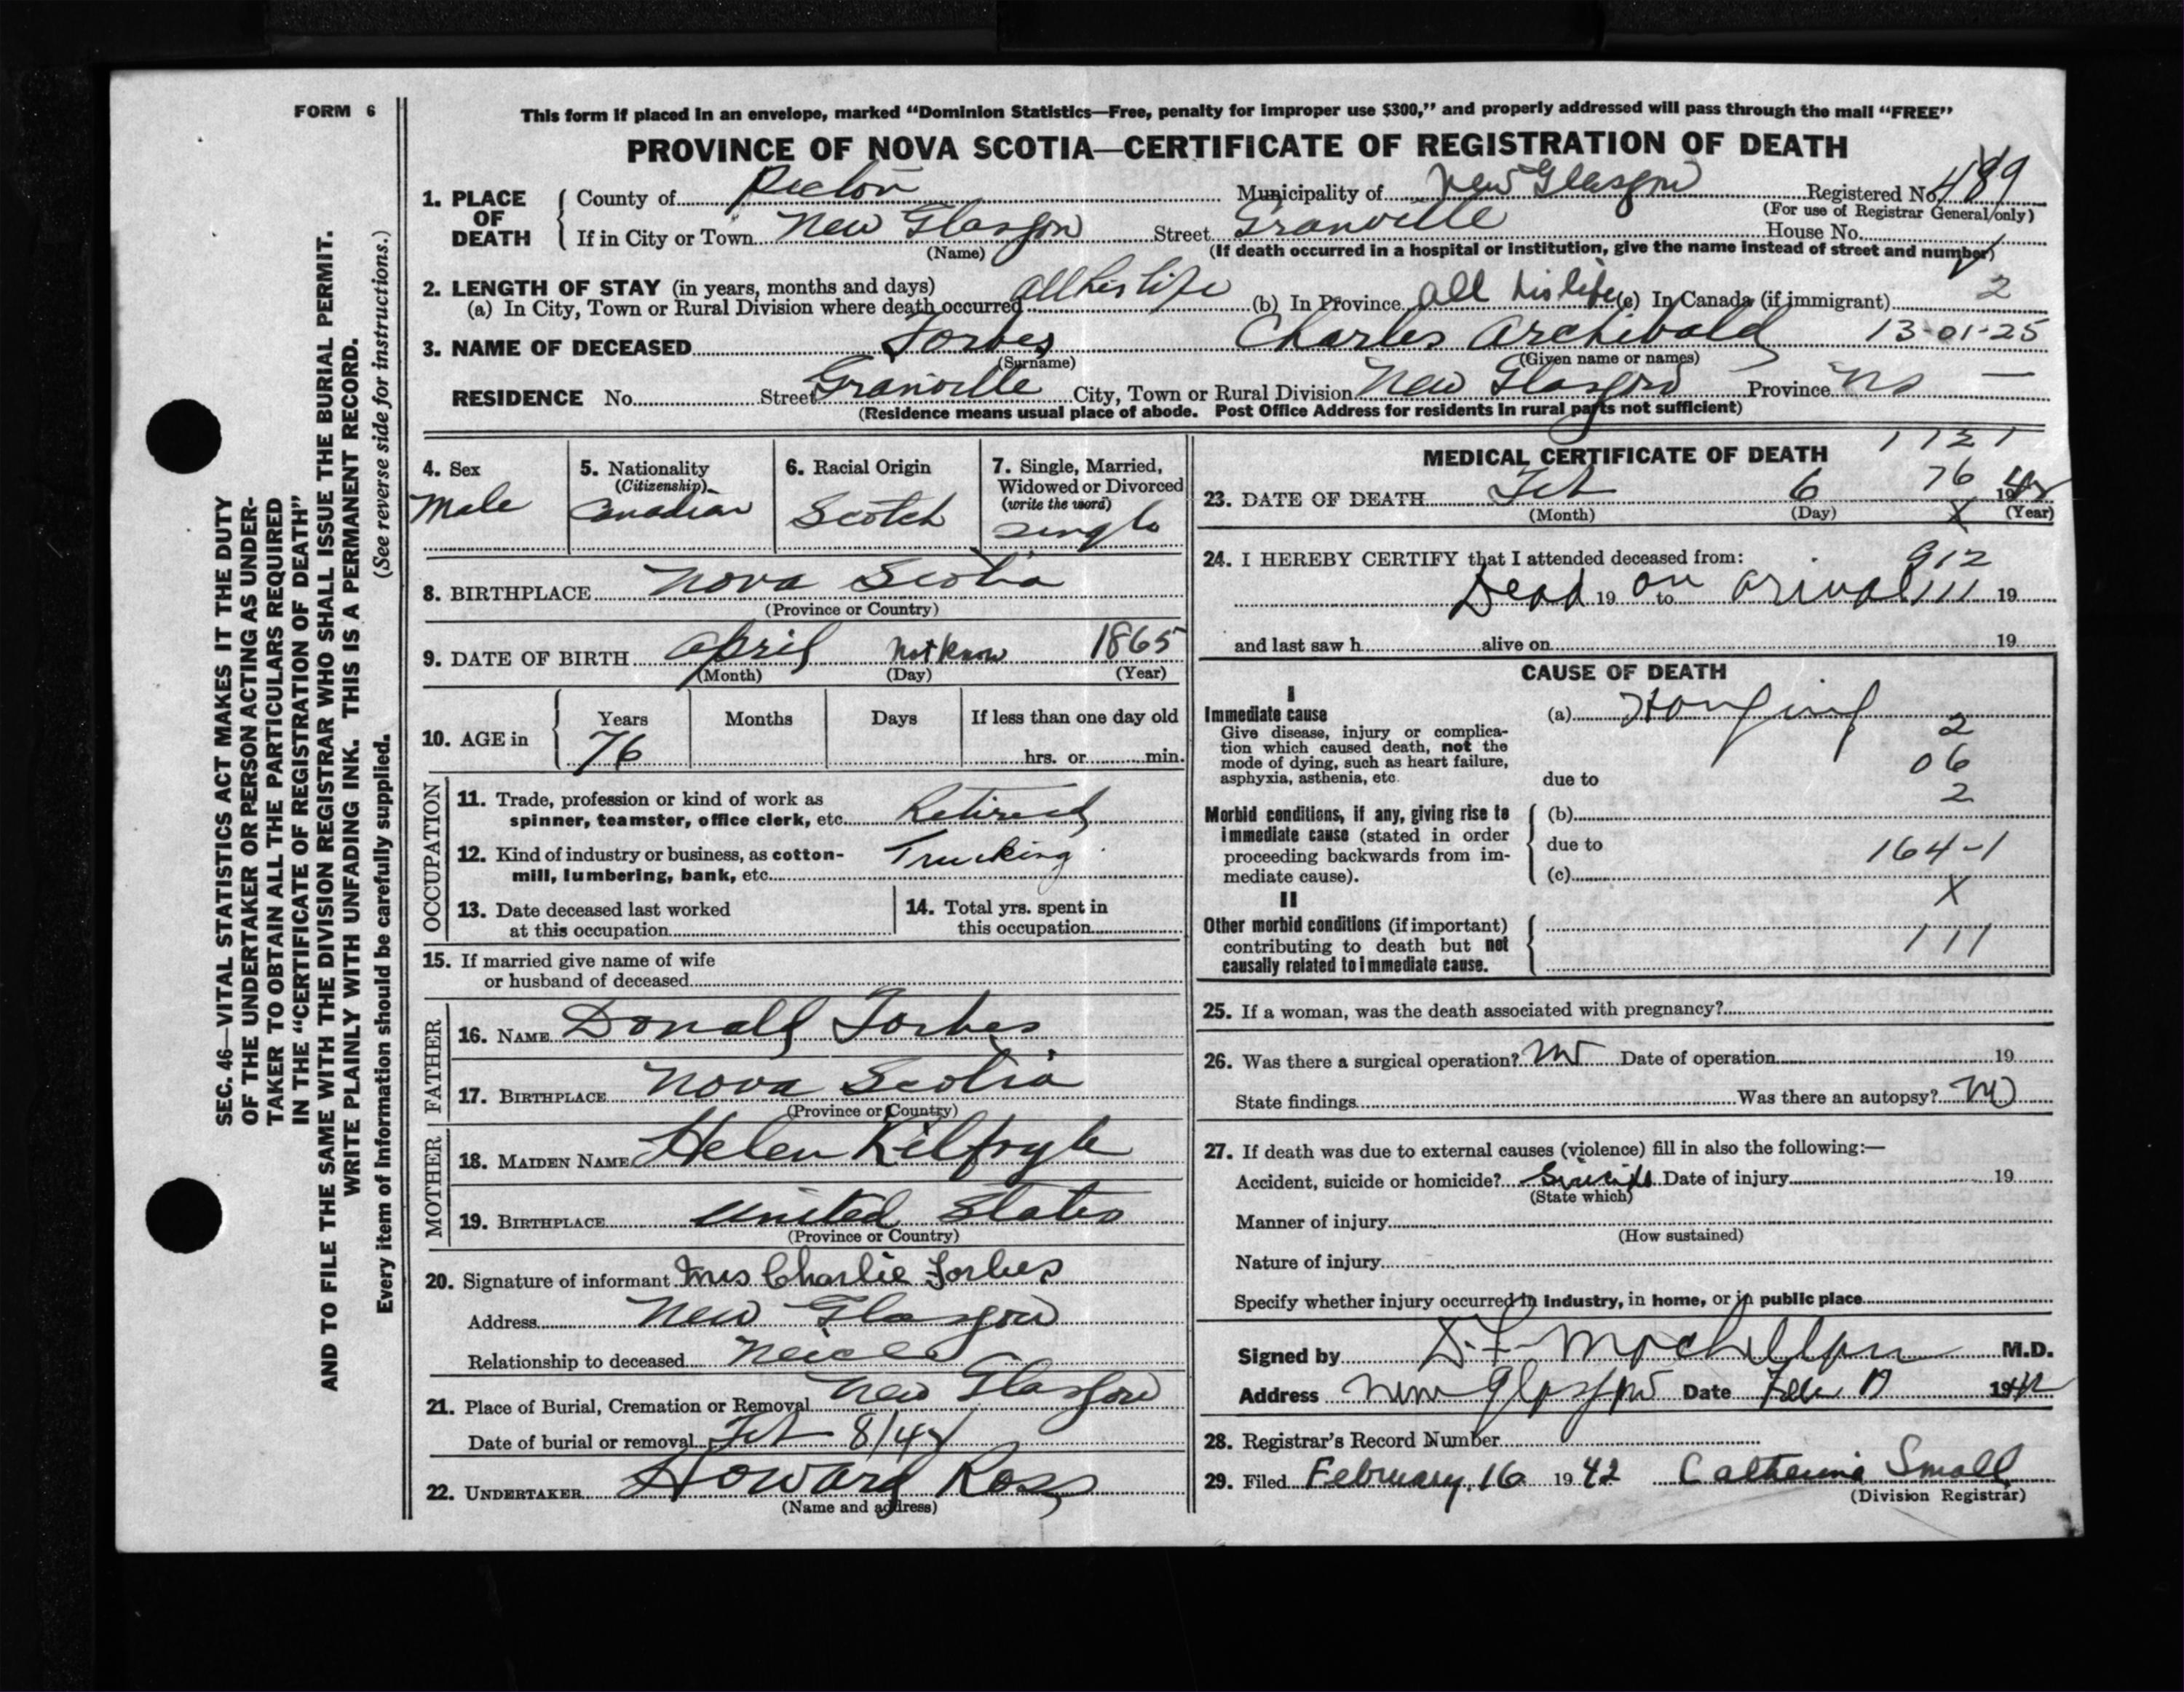 FORM 6
This form if placed in an envelope, marked “Dominion Statistics—Free, penalty for improper use $300,” and properly addressed will pass through the mail “FREE”
PROVINCE OF NOVA SCOTIA—CERTIFICATE OF REGISTRATION OF DEATH
1. PLACE OF DEATH
County of Pictou Municipality of New Glasgow Registered No. 489
(For use of Registrar General only)
If in City or Town New Glasgow Street Granville House No.
(Name) (If death occurred in a hospital or institution, give the name instead of street and number)
2. LENGTH OF STAY (in years, months and days)
(a) In City, Town or Rural Division where death occurred all his life (b) In Province all his life (c) In Canada (if immigrant) 2
3. NAME OF DECEASED Forbes Charles Archibald 13-01-25
(Surname) (Given name or names)
RESIDENCE No. Street Granville City, Town or Rural Division New Glasgow Province NS —
(Residence means usual place of abode. Post Office Address for residents in rural parts not sufficient)
4. Sex
Male
5. Nationality
(Citizenship)
Canadian
6. Racial Origin
Scotch
7. Single, Married,
Widowed or Divorced
(write the word)
single
8. BIRTHPLACE Nova Scotia
(Province or Country)
9. DATE OF BIRTH April Not Know 1865
(Month) (Day) (Year)
10. AGE in
Years Months Days If less than one day old
76 hrs. or min.
OCCUPATION
11. Trade, profession or kind of work as
spinner, teamster, office clerk, etc. Retired
12. Kind of industry or business, as cotton-
mill, lumbering, bank, etc. Trucking
13. Date deceased last worked
at this occupation
14. Total yrs. spent in
this occupation
15. If married give name of wife
or husband of deceased
FATHER
16. NAME Donald Forbes
17. BIRTHPLACE Nova Scotia
(Province or Country)
MOTHER
18. MAIDEN NAME Helen
19. BIRTHPLACE United States
(Province or Country)
20. Signature of informant Mrs Charlie Forbes
Address New Glasgow
Relationship to deceased Neice
21. Place of Burial, Cremation or Removal New Glasgow
Date of burial or removal Feb 8/42
22. UNDERTAKER Howard Ross
(Name and address)
MEDICAL CERTIFICATE OF DEATH 1121
23. DATE OF DEATH Feb 6 76 1942
(Month) (Day) X (Year)
24. I HEREBY CERTIFY that I attended deceased from: 912
Dead 19 on to arival 111 19
and last saw h alive on 19
CAUSE OF DEATH
I
Immediate cause
Give disease, injury or complica-
tion which caused death, not the
mode of dying, such as heart failure,
asphyxia, asthenia, etc.
(a) Hanging
2
06
due to
2
Morbid conditions, if any, giving rise to
immediate cause (stated in order
proceeding backwards from im-
mediate cause).
(b)
due to
164-1
(c)
X
II
Other morbid conditions (if important)
contributing to death but not
causally related to immediate cause.
111
25. If a woman, was the death associated with pregnancy?
26. Was there a surgical operation? no Date of operation 19
State findings Was there an autopsy? no
27. If death was due to external causes (violence) fill in also the following:—
Accident, suicide or homicide? Suicide Date of injury 19
(State which)
Manner of injury
(How sustained)
Nature of injury
Specify whether injury occurred in industry, in home, or in public place
Signed by M.D.
Address New Glasgow Date Feb 1942
28. Registrar's Record Number
29. Filed February 16 1942 Catherine Small
(Division Registrar)
SEC. 46—VITAL STATISTICS ACT MAKES IT THE DUTY
OF THE UNDERTAKER OR PERSON ACTING AS UNDER-
TAKER TO OBTAIN ALL THE PARTICULARS REQUIRED
IN THE “CERTIFICATE OF REGISTRATION OF DEATH”
AND TO FILE THE SAME WITH THE DIVISION REGISTRAR WHO SHALL ISSUE THE BURIAL PERMIT.
WRITE PLAINLY WITH UNFADING INK. THIS IS A PERMANENT RECORD.
Every item of information should be carefully supplied. (See reverse side for instructions.)